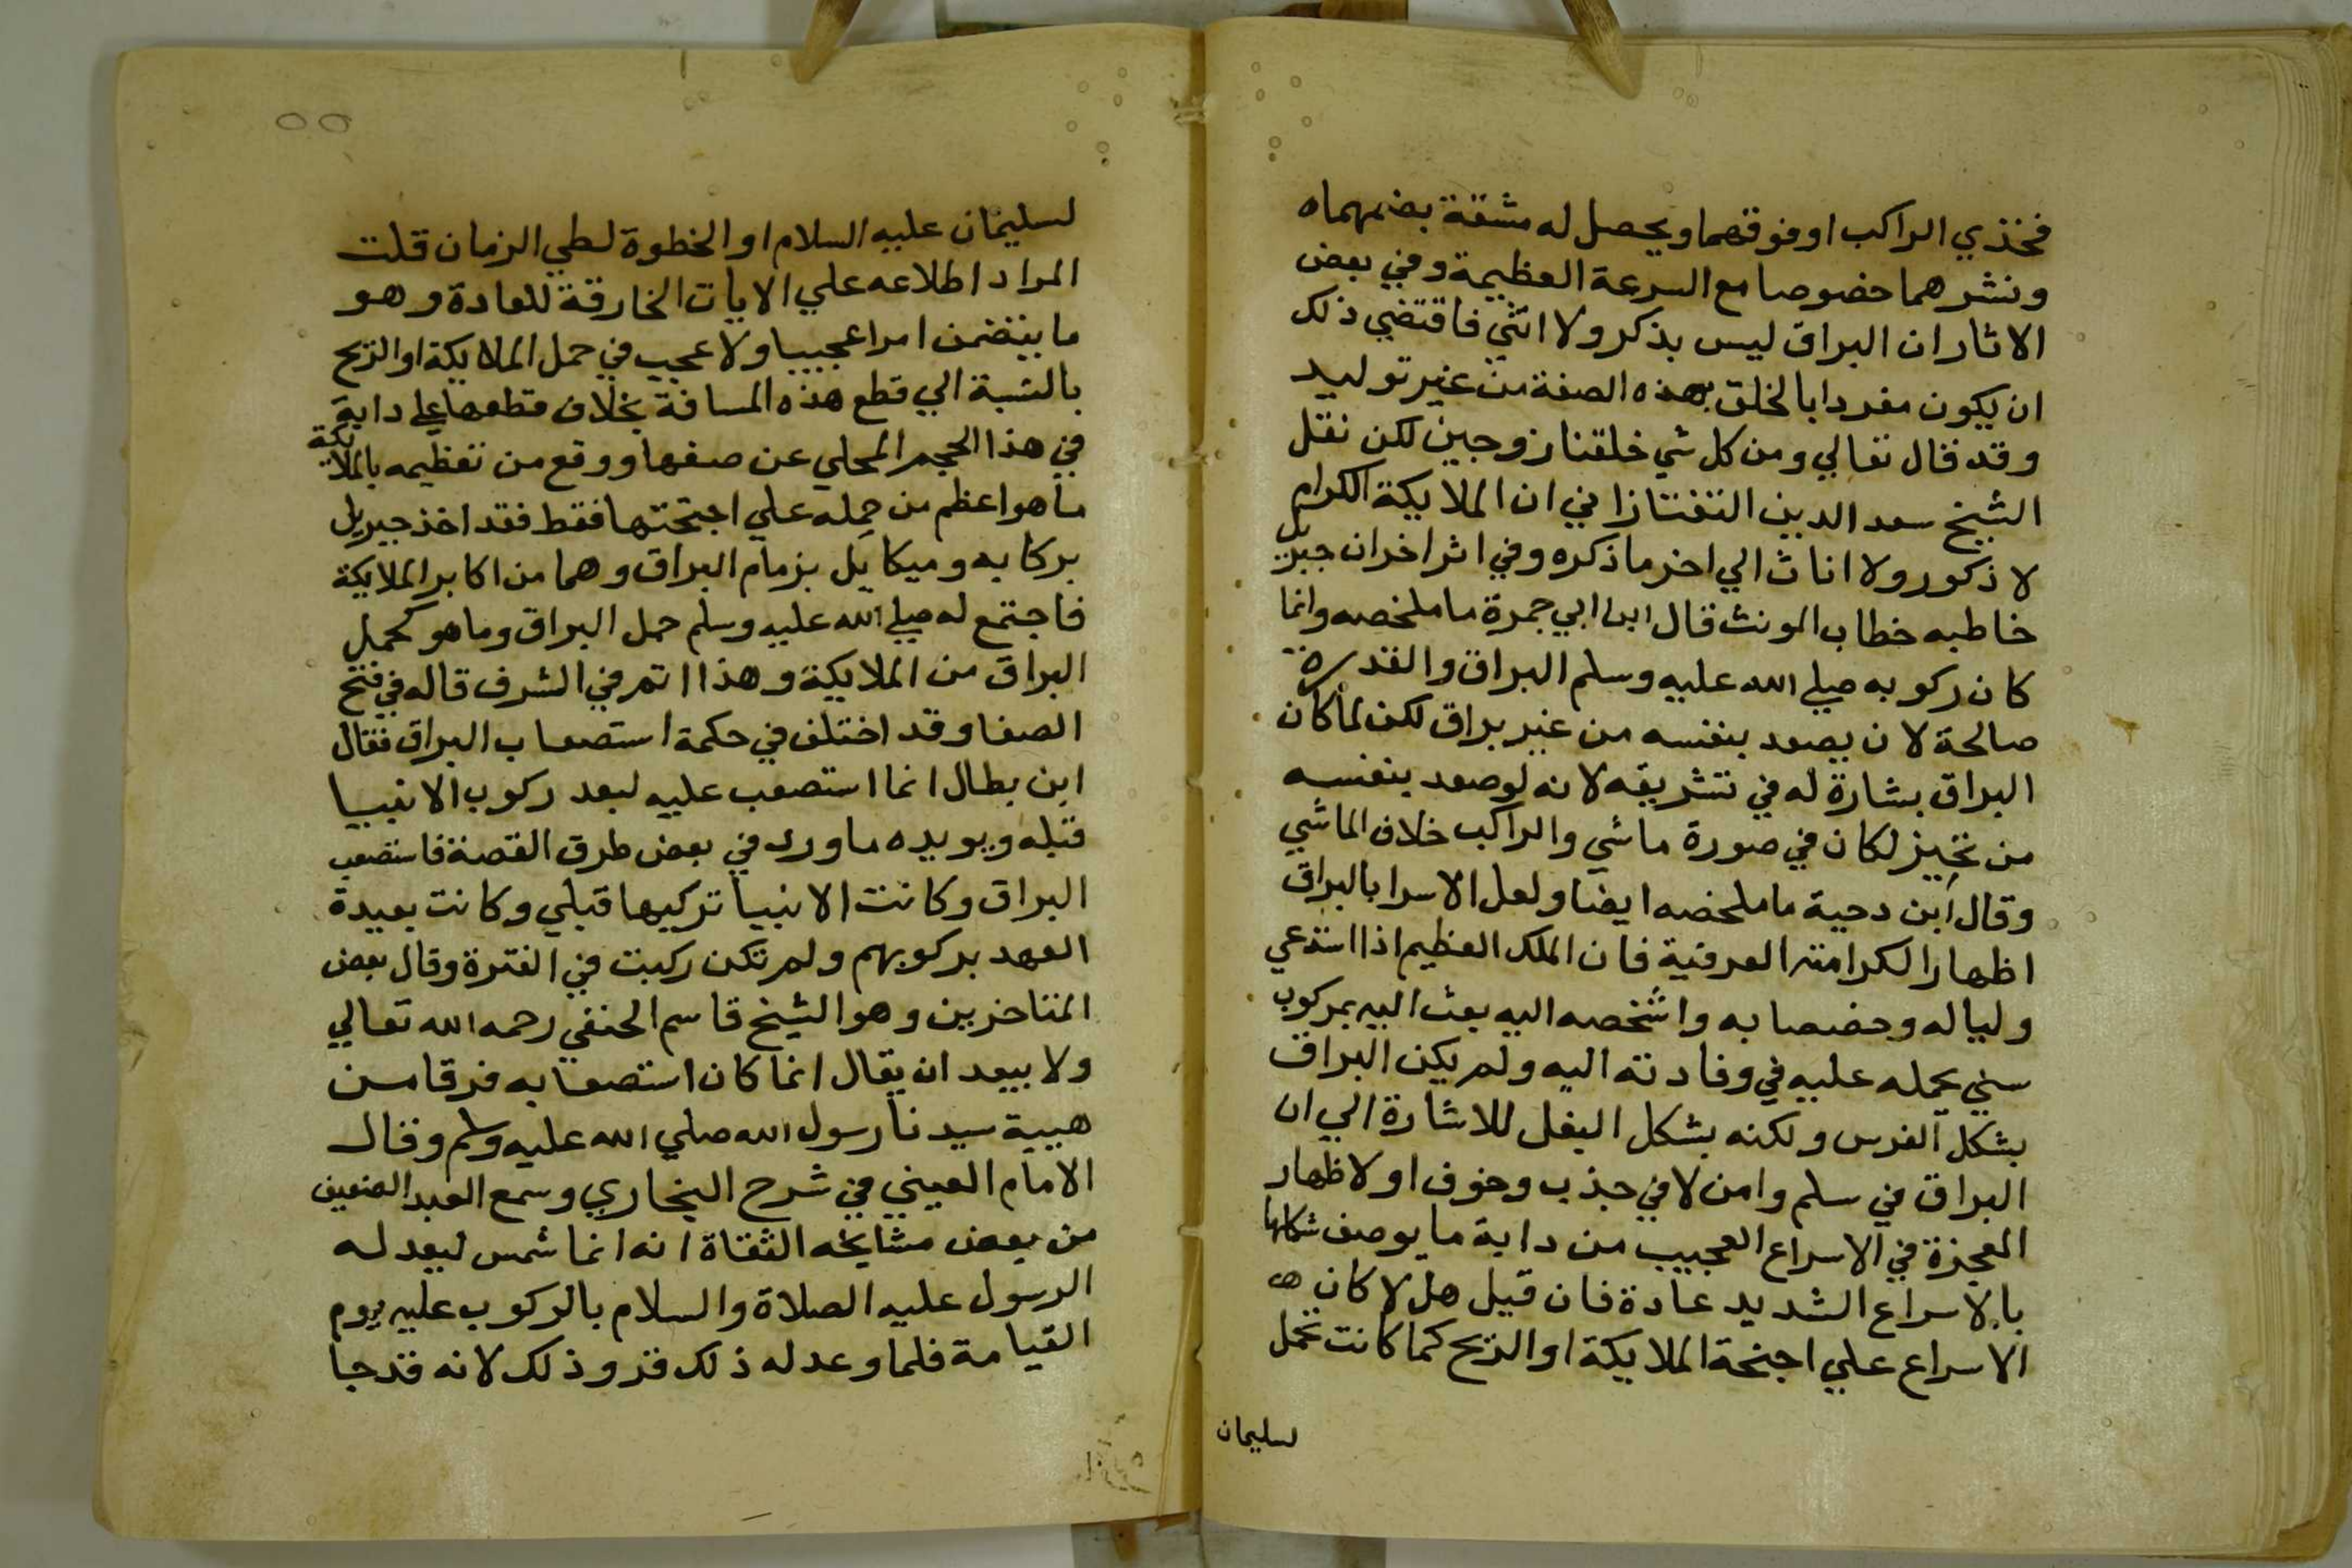 فخذي الراكب او فوقهما ويحصل له مشقة بضمهما ه
ونشرهما خصوصا مع السرعة العظيمة وفي بعض
الاثار ان البراق ليس بذكر ولا انثي فاقتضي ذلك
ان يكون مفردا بالخلق بهذه الصفة من غير توليد
وقد قال تعالي ومن كل شي خلقنا زوجين لكن نقل
الشيخ سعد الدين التفتازاني ان الملايكة الكرام
لا ذكور ولا اناث الي اخر ما ذكره وفي اثر اخر ان جبريل
خاطبه خطاب المونث قال ابن ابي جمرة ما ملخصه وانما
كان ركوبه صلي الله عليه وسلم البراق والقدرة
صالحة لان يصعد بنفسه من غير براق لكن لما كان
البراق بشارة له في تشريفه لانه لو صعد بنفسه
من تخيز لكان في صورة ماشي والراكب خلاف الماشي
وقال ابن دحية ما ملخصه ايضا ولعل الاسرا بالبراق
اظهارا لكرامته العرفية فان الملك العظيم اذا استدعي
وليا له وخصصا به واشخصه اليه بعث اليه بمركوب
سني يحمله عليه في وفادته اليه ولم يكن البراق
بشكل الفرس ولكنه بشكل البغل للاشارة الي ان
البراق في سلم وامن لا في جذب وخوف او لاظهار
المعجزة في الاسراع العجيب من دابة ما يوصف شكلها
بالاسراع الشديد عادة فان قيل هل لا كان
الاسراع علي اجنحة الملايكة او الريح كما كانت تحمل
لسليمان
٥٥
لسليمان عليه السلام او الخطوة لطي الزمان قلت
المراد اطلاعه علي الايات الخارقة للعادة وهو
ما يتضمن امرا عجيبا ولا عجب في حمل الملايكة او الريح
بالنسبة الي قطع هذه المسافة بخلاف قطعها علي دابة
في هذا الحجم المحلي عن صفها ووقع من تعظيمه بالملايكة
ما هو اعظم من حمله علي اجنحتها فقط فقد اخذ جبريل
بركابه وميكايل بزمام البراق وهما من اكابر الملايكة
فاجتمع له صلي الله عليه وسلم حمل البراق وما هو كحمل
البراق من الملايكة وهذا اتم في الشرف قاله في فتح
الصفا وقد اختلف في حكمة استصعاب البراق فقال
ابن بطال انما استصعب عليه لبعد ركوب الانبيا
قبله ويويده ما ورد في بعض طرق القصة فاستصعب
البراق وكانت الانبيا تركبها قبلي وكانت بعيدة
العهد بركوبهم ولم تكن ركبت في الفترة وقال بعض
المتاخرين وهو الشيخ قاسم الحنفي رحمه الله تعالي
ولا يبعد ان يقال انما كان استصعابه فرقا من
هيبة سيدنا رسول الله صلي الله عليه وسلم وقال
الامام العيني في شرح البخاري وسمع العبد الضعيف
من بعض مشايخه الثقاة انه انما شمس ليعد له
الرسول عليه الصلاة والسلام بالركوب عليه يوم
القيامة فلما وعد له ذلك قر وذلك لانه قد جا